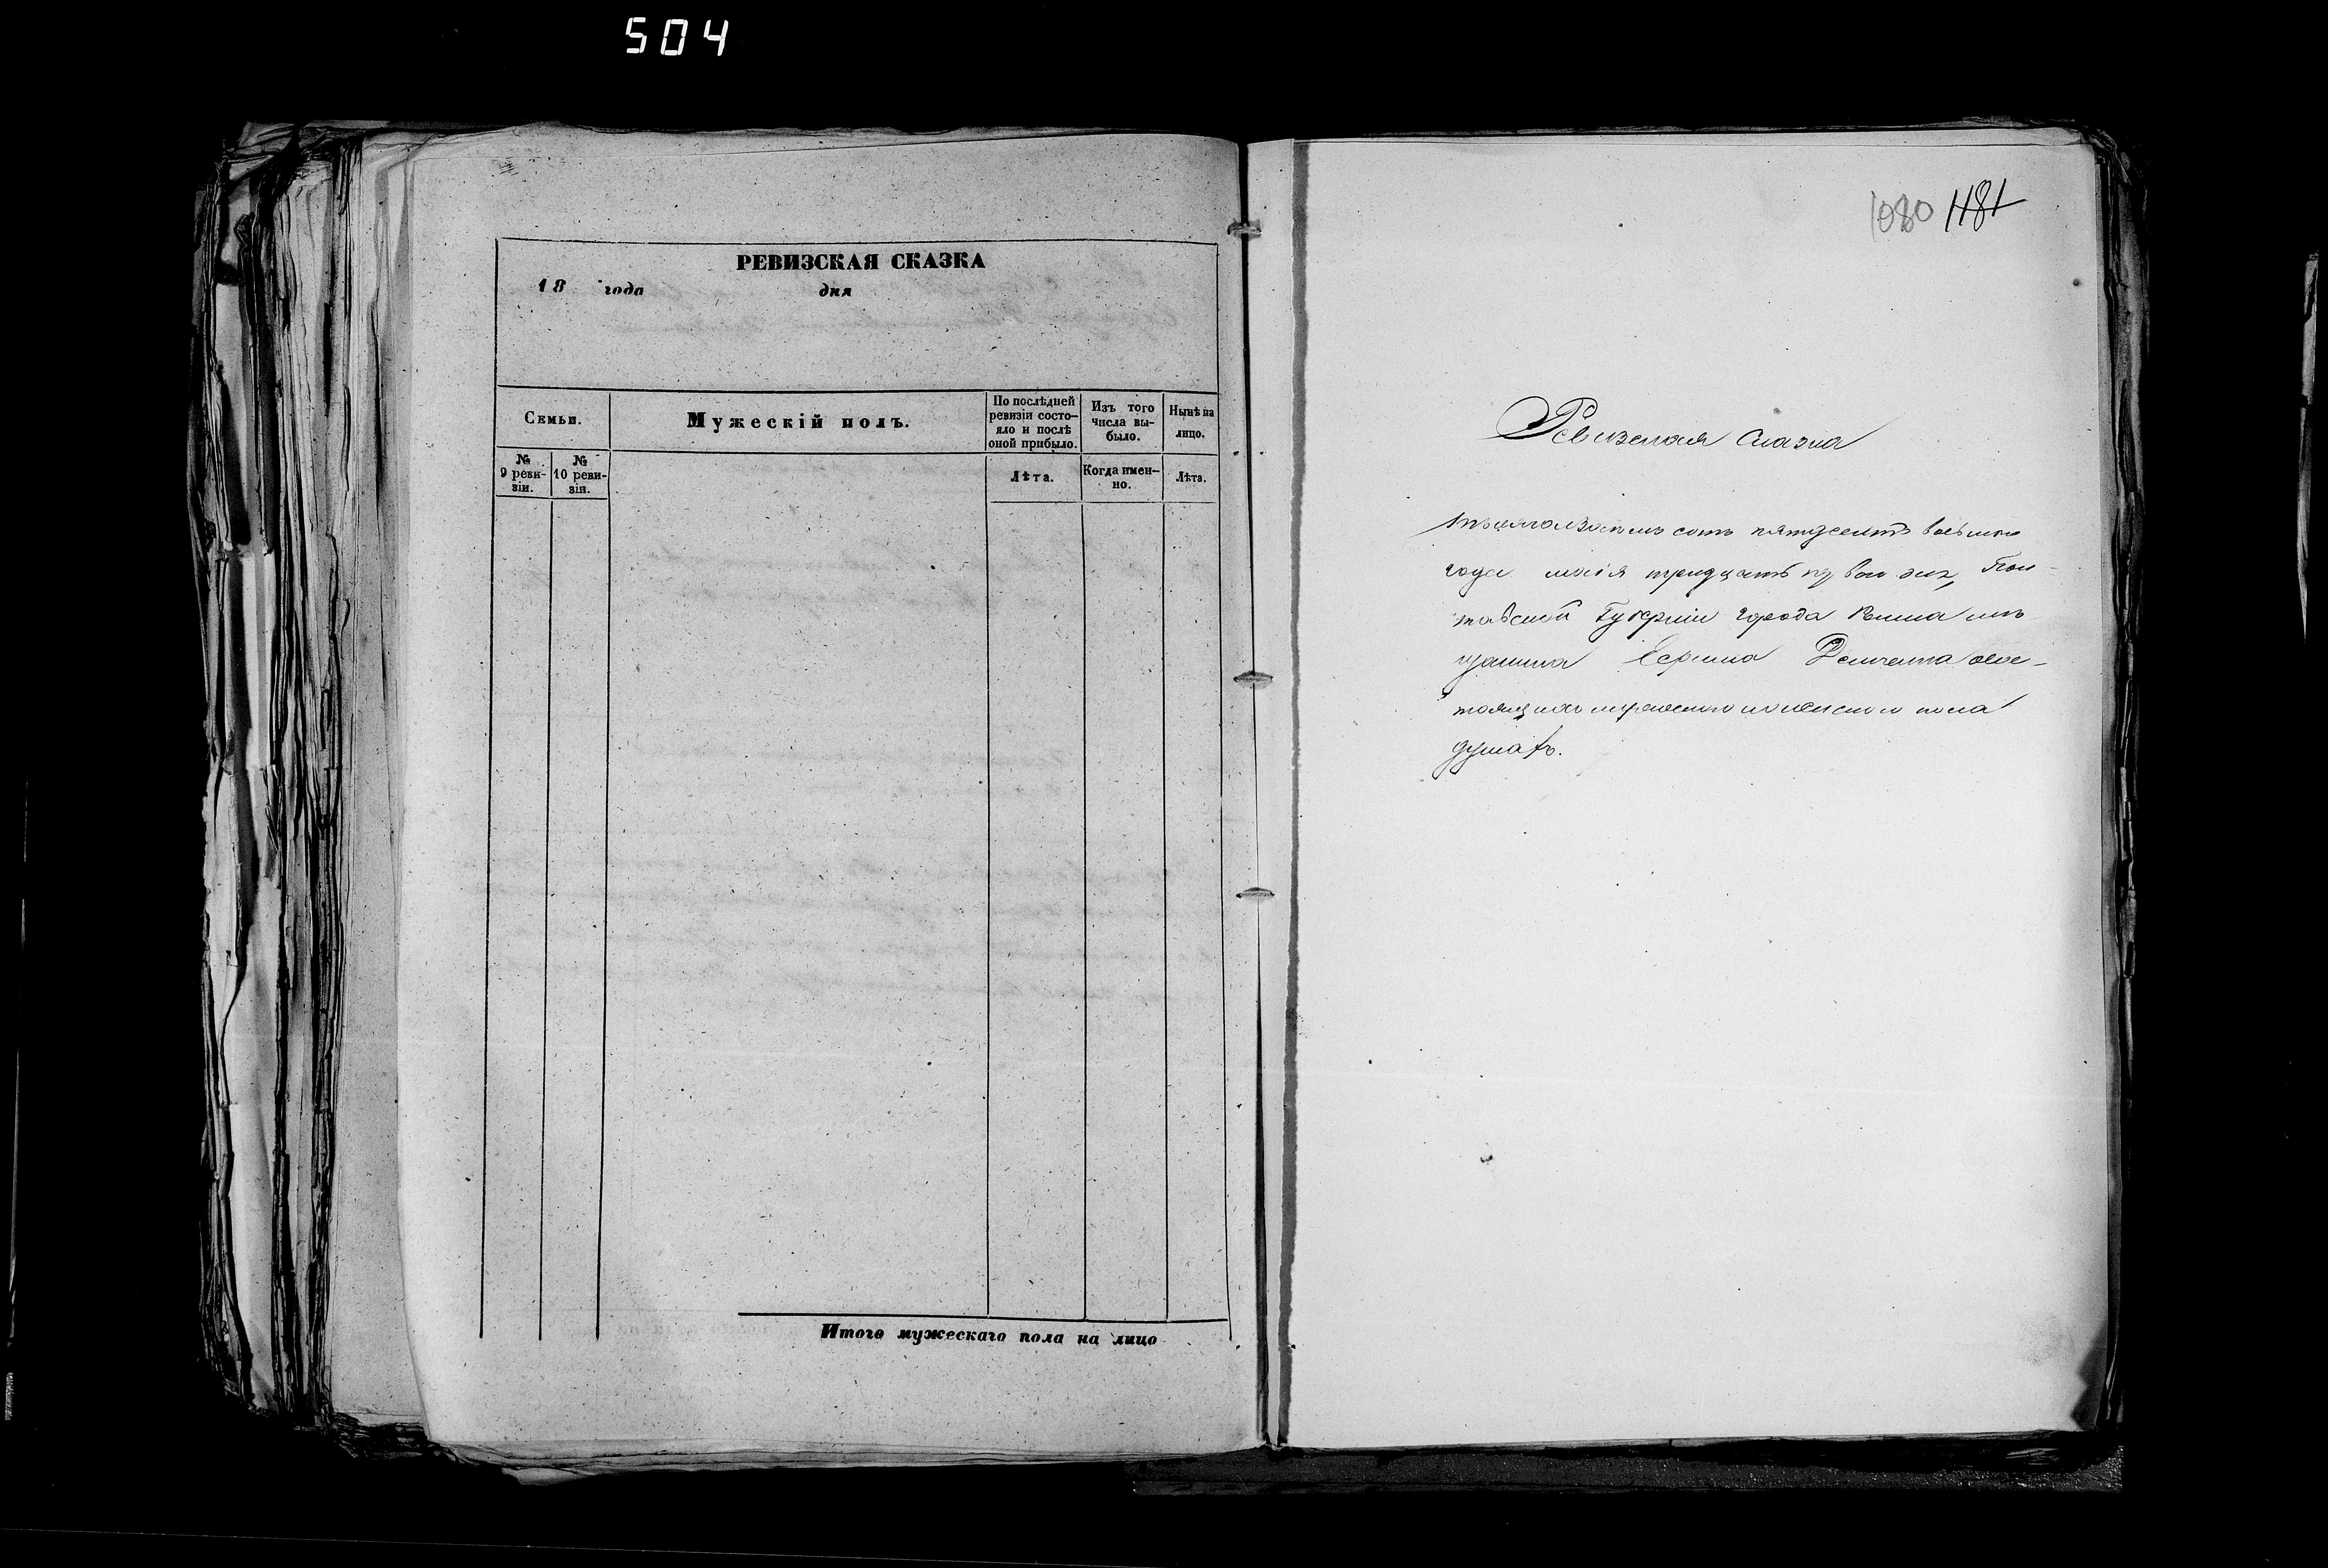 504
РЕВИЗСКАЯ СКАЗКА
18 года дня
Семьи.
Мужескій полъ.
По послѣдней ревизіи состо-
яло и послѣ
оной прибыло.
Изъ того
числа вы-
было.
Нынѣ на
лицо.
№
9 реви-
зіи.
№
10 реви-
зіи.
Лѣта.
Когда имен-
но.
Лѣта.
Итого мужескаго пола на лицо
1080 1181
Ревизская сказка
тысяча восемь сотъ пятдесятъ восьмого
года маія тридцать дня, Пол-
тавской Губерніи города мѣ
щанина Ефима Демченка о сос-
тоящихъ мужеского и женского пола
душахъ.